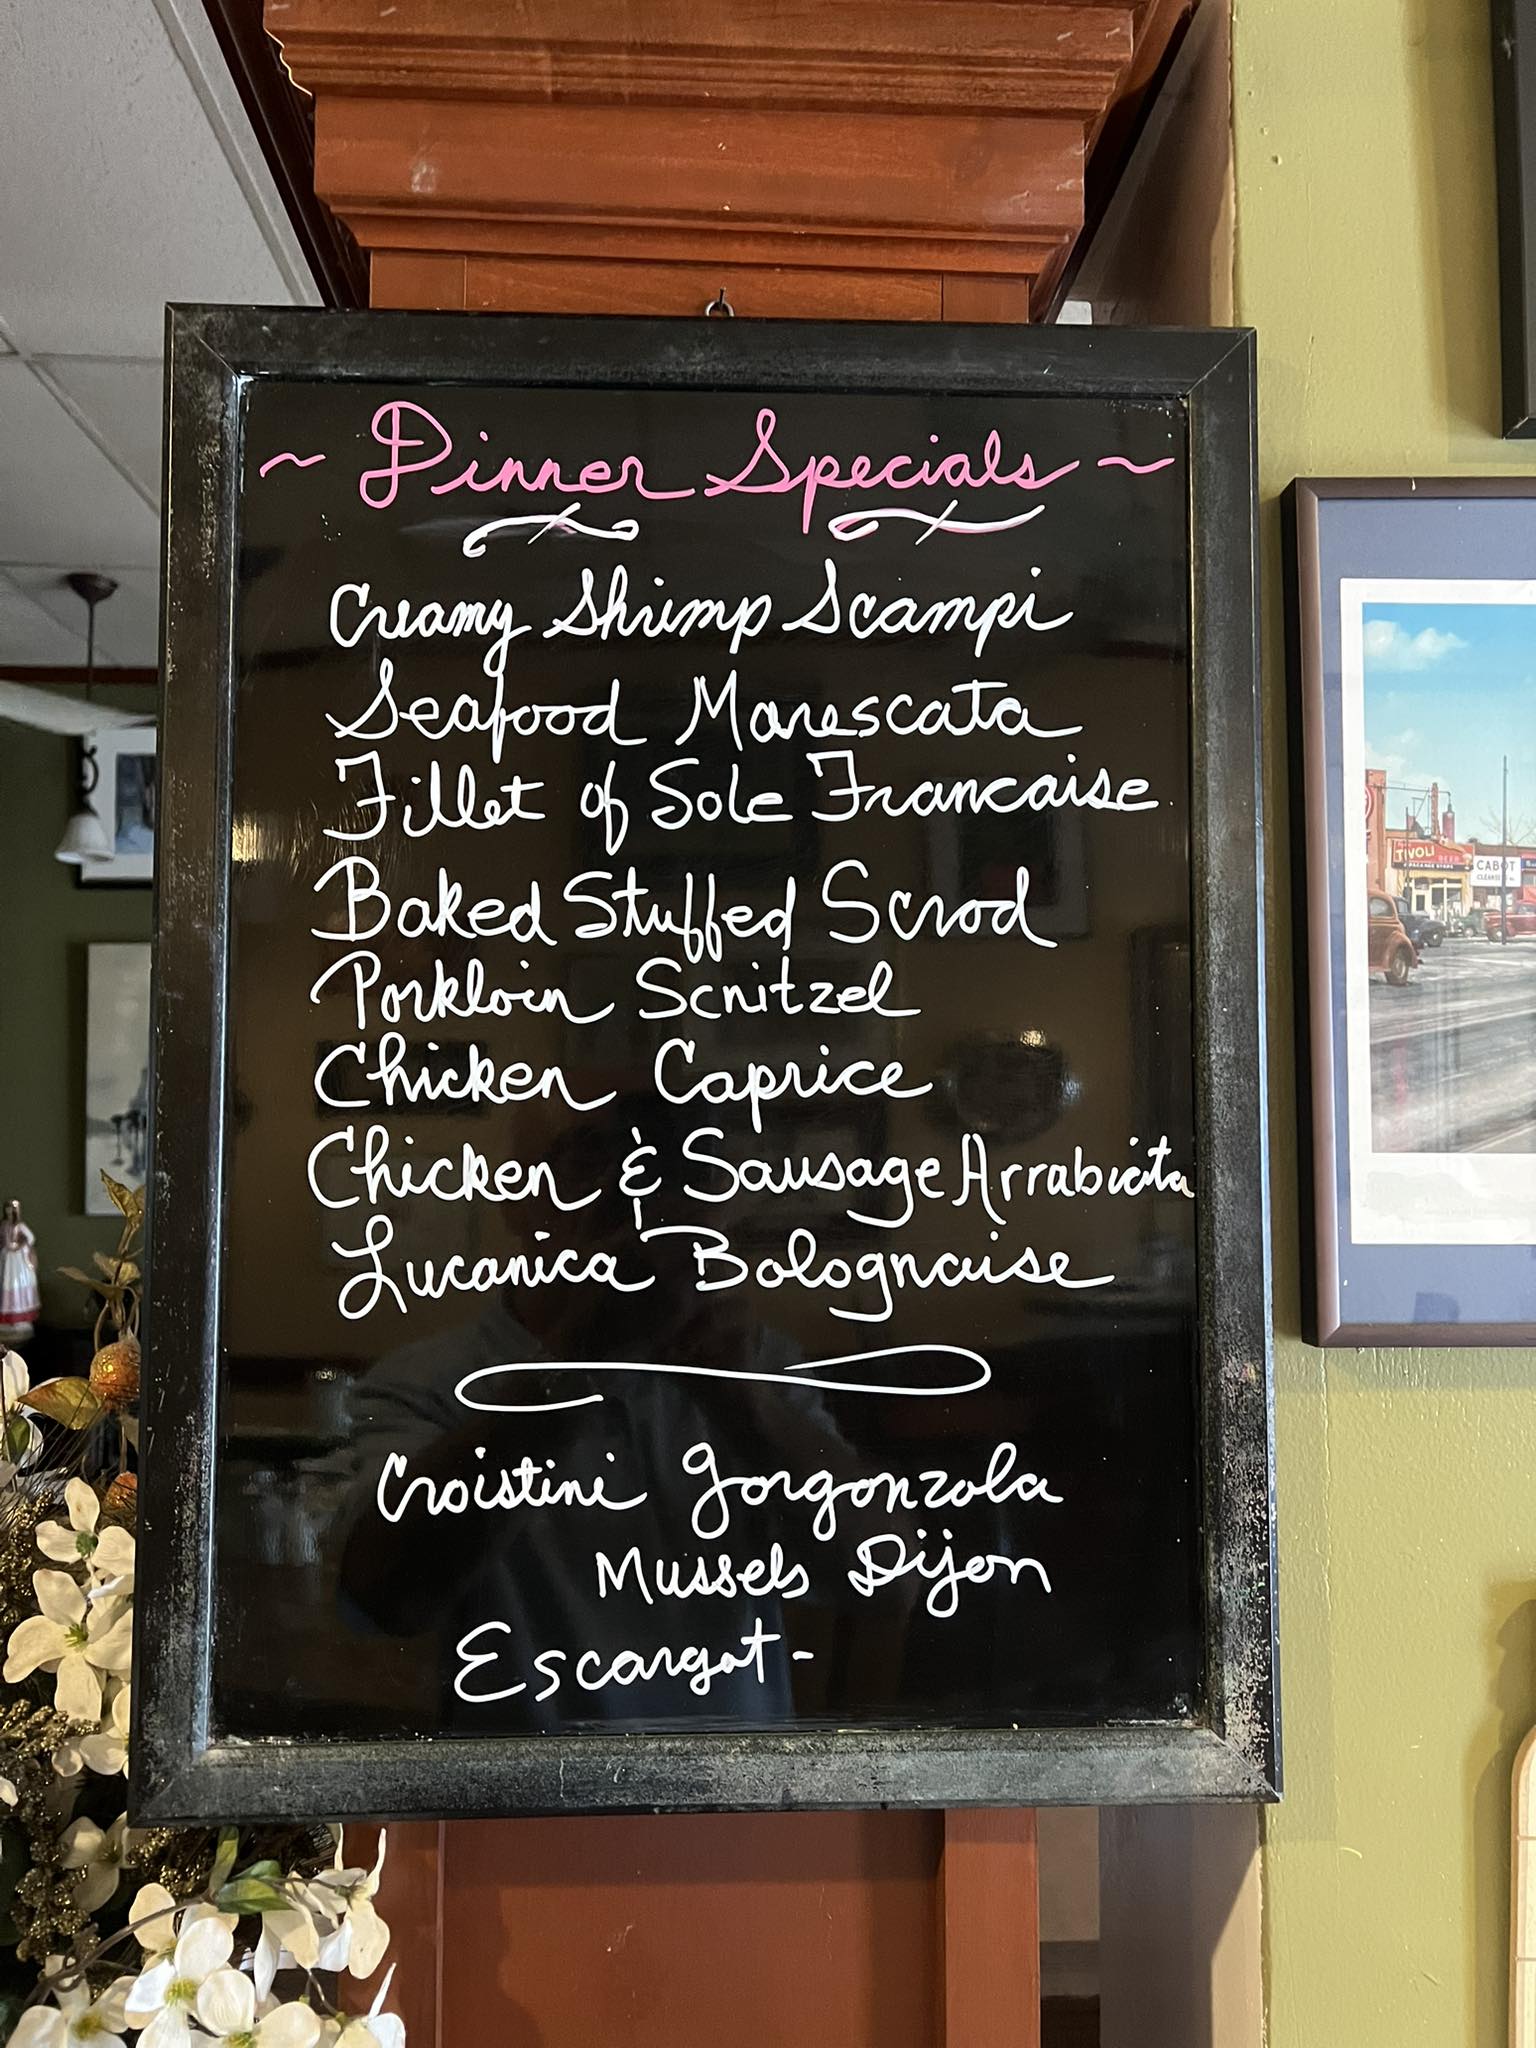 ~ Dinner Specials ~
Creamy Shrimp Scampi
Seafood Marescata
Fillet of Sole Francaise
Baked Stuffed Scrod
Porkloin Scnitzel
Chicken Caprice
Chicken & Sausage Arrabiata
Lucanica Bolognaise
Croistini Gorgonzola
Mussels Dijon
Escargot-
TIVOLI BEER
CABOT
CLEANSERS